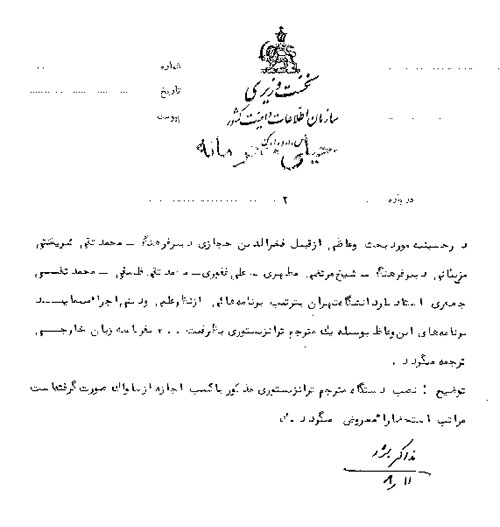 شماره
تاریخ
پیوست
نخست وزیری
سازمان اطلاعات و امنیت کشور
درباره ۲
در حسینیه مورد بحث وعاظی از قبیل فخرالدین حجازی دبیر فرهنگ - محمد تقی شریعتی
مزینانی دبیر فرهنگ - شیخ مرتضی مطهری - علی غفوری - محمد تقی فلسفی - محمد تقی
جعفری استاد دانشگاه تهران بترتیب برنامه هائی از نظر علمی و دینی اجرا مینمایند
برنامه های این وعاظ بوسیله یک مترجم ترانزیستوری با ظرفیت ۲۰۰ نفر به سه زبان خارجی
ترجمه میگردد.
توضیح : نصب دستگاه مترجم ترانزیستوری مذکور با کسب اجازه از ساواک صورت گرفته است
مراتب استحضارا معروض میگردد.